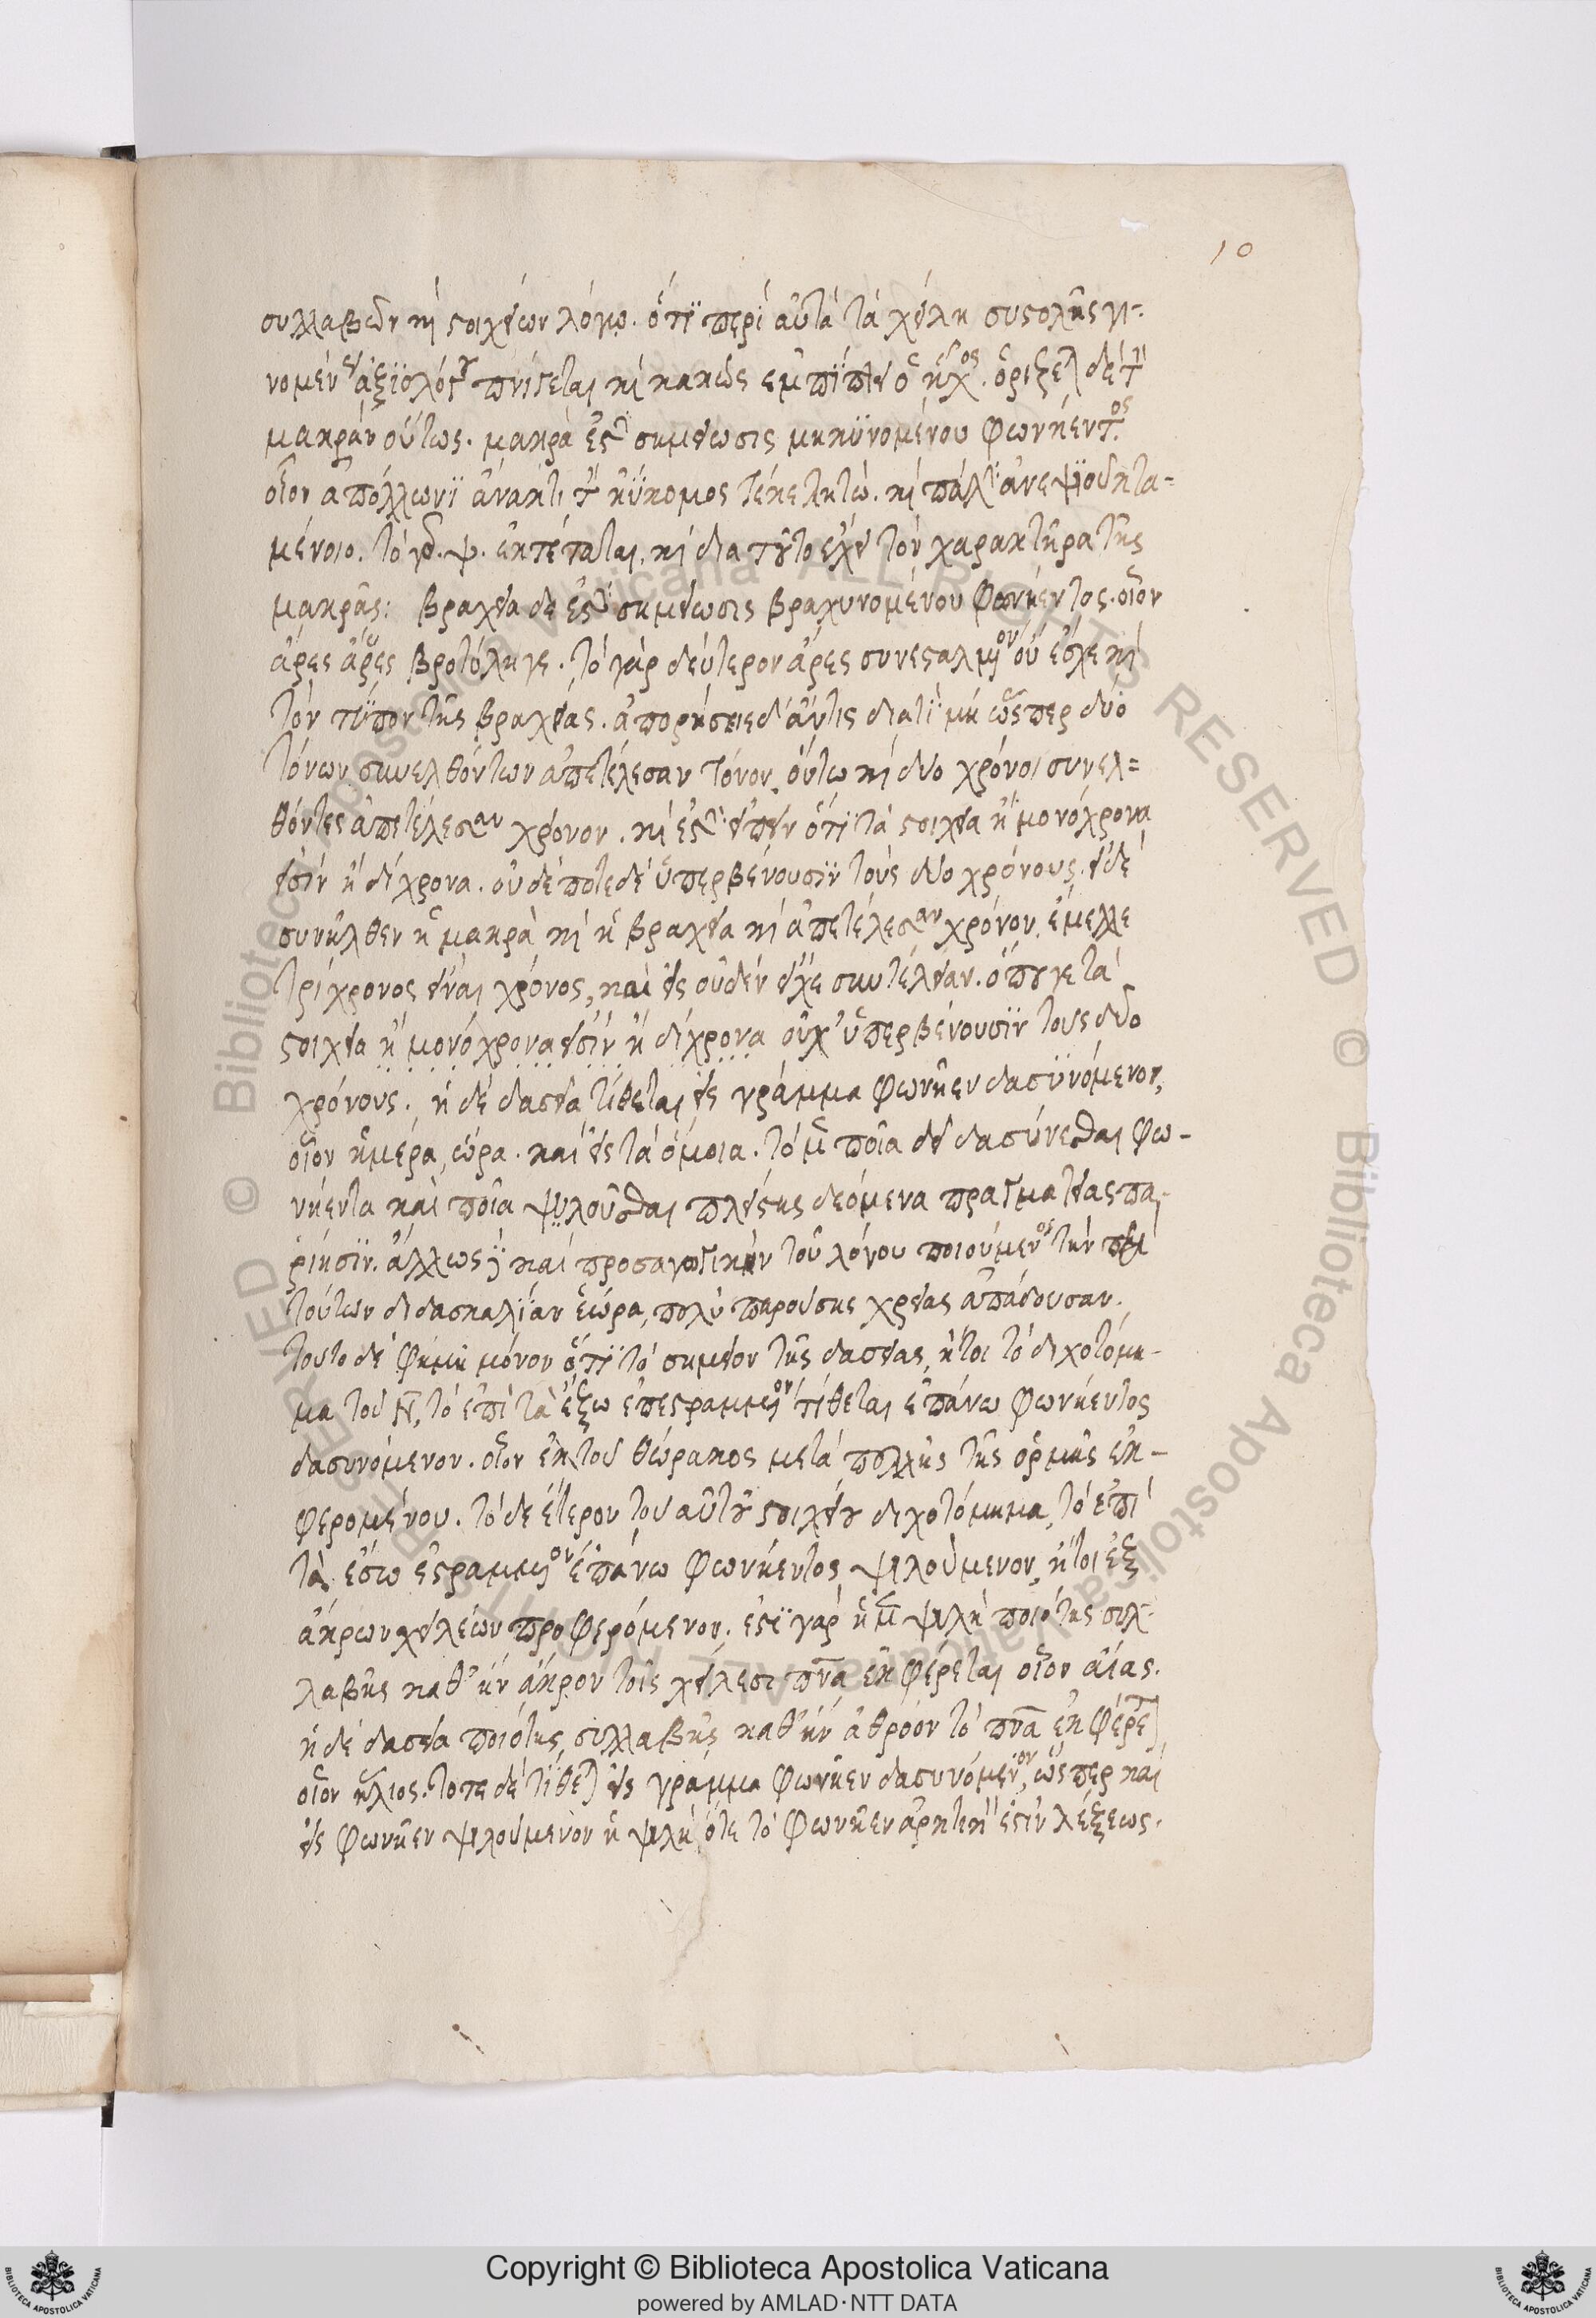 10
συλλαβῶν καὶ στοιχείων λόγῳ. ὅτι περὶ αὐτὰ τὰ χείλη συστολῆς γι-
νομένης ἀξιολόγου πνίγεται καὶ κακῶς ἐμπίπτει ὁ ἦχος. ὁρίζεται δὲ τὴν
μακρὰν οὕτως. μακρὰ ἐστὶ σημείωσις μηκϋνομένου φωνήεντος.
οἷον ἀπόλλωνϊ ἄνακτι τὸν ἠΰκομος τέκε λητώ. καὶ πάλιν
μένοιο. τὸ γὰρ ψ. ἐκτέταται. καὶ διὰ τοῦτο ἔχει τὸν χαρακτῆρα τῆς
μακρᾶς: βραχεῖα δὲ ἐστὶ σημείωσις βραχυνομένου φωνήεντος. οἷον
ἄρες ἄρες βροτόλοιγε. τὸ γὰρ δεύτερον ἄρες συνεσταλμένον οὐ ἔσχε καὶ
τὸν τύπον τῆς βραχείας. ἀπορήσειε δ' ἄν τις διατί μὴ ὥσπερ δύο
τόνων συνελθόντων ἀπετέλεσαν τόνον, οὕτω καὶ δύο χρόνοι συνελ=
θόντες ἀπετέλεσαν χρόνον. καὶ ἐστὶν εἰπεῖν ὅτι τὰ στοιχεῖα ἢ μονόχρονα
εἰσὶν ἢ δίχρονα. οὐδέποτε δὲ ὑπερβένουσϊν τοὺς δύο χρόνους. εἰ δὲ
συνῆλθεν ἡ μακρὰ καὶ ἡ βραχεῖα καὶ ἀπετέλεσαν χρόνον, ἔμελλε
τρίχρονος εἶναι χρόνος, καὶ εἰς οὐδὲν εἶχε συντέλειαν. ὅπου γε τὰ
στοιχεῖα ἢ μονόχρονα εἰσὶν ἢ δίχρονα οὐχ' ὑπερβένουσϊν τοὺς δύο
χρόνους. ἡ δὲ δασεῖα τίθεται εἰς γράμμα φωνῆεν δασϋνόμενον,
οἷον ἡμέρα, ὥρα. καὶ εἰς τὰ ὅμοια. τὸ μὲν ποῖα δεῖ δασύνεσθαι φω-
νήεντα καὶ ποῖα ψιλοῦσθαι πλείστης δεόμενα πραγματείας πα-
ρίησϊν. ἄλλως καὶ προσαγωγικὴν τοῦ λόγου ποιούμενος τὴν περὶ
τούτων διδασκαλίαν ἑώρα, πολὺ παρούσης χρείας ἀπάδουσαν.
τοῦτο δὲ φημὶ μόνον ὅτι τὸ σημεῖον τῆς δασείας, ἤτοι τὸ διχοτόμη-
μα τοῦ Η, τὸ ἐπὶ τὰ ἔξω ἐπεστραμμένον τίθεται ἐπάνω φωνήεντος
δασυνόμενον. οἷον ἐκ τοῦ θώρακος μετὰ πολλῆς τῆς ὁρμῆς ἐκ-
φερομένου. τὸ δὲ ἕτερον τοῦ αὐτοῦ στοιχείου διχοτόμημα, τὸ ἐπὶ
τὰ ἔσω ἐστραμμένον ἐπάνω φωνήεντος ψιλούμενον, ἤτοι ἐξ
ἄκρων χειλέων προφερόμενον. ἐστϊ γὰρ ἡ μὲν ψιλὴ ποιότης συλ-
λαβῆς καθ' ἣν ἄκρον τοῖς χείλεσι πνᾶ ἐκφέρεται οἷον αἴας.
ἡ δὲ δασεῖα ποιότης συλλαβῆς καθ' ἣν ἀθρόον τὸ πνᾶ ἐκφέρεται
οἷον ἥλιος. τοτε δὲ τίθεται εἰς γράμμα φωνῆεν δασυνόμενον, ὥσπερ καὶ
εἰς φωνῆεν ψιλούμενον ἡ ψιλὴ, ὅτε τὸ φωνῆεν ἀρκτικὴ ἐστὶν λέξεως.
© Biblioteca Apostolica Vaticana ALL RIGHTS RESERVED
Copyright © Biblioteca Apostolica Vaticana
powered by AMLAD·NTT DATA